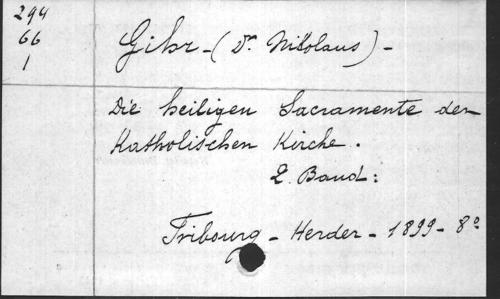 294
66
1
Gihr - (Dr. Nikolaus) -
Die heiligen Sacramente der
Katholischen Kirche.
2. Band:
Fribourg - Herder - 1899 - 8º